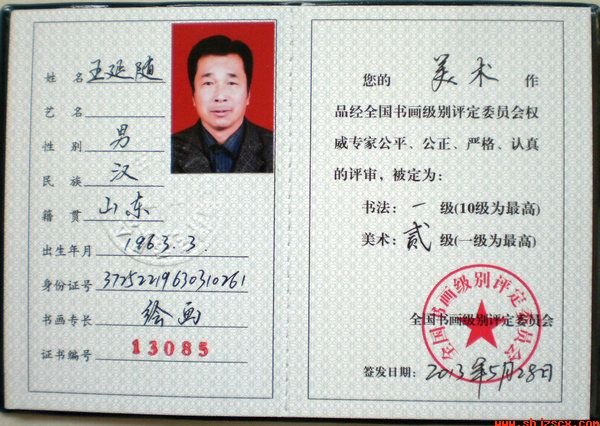 姓名 王延随
艺名
性别 男
民族 汉
籍贯 山东
出生年月 1963.3.
身份证号 37252219630310261
书画专长 绘画
证书编号 13085
您的 美术 作
品经全国书画级别评定委员会权
威专家公平、公正、严格、认真
的评审，被定为：
书法：一 级(10级为最高)
美术：贰 级(一级为最高)
全国书画级别评定委员会
全国书画级别评定委员会
签发日期：2013年5月28日
www.shjzscx.com